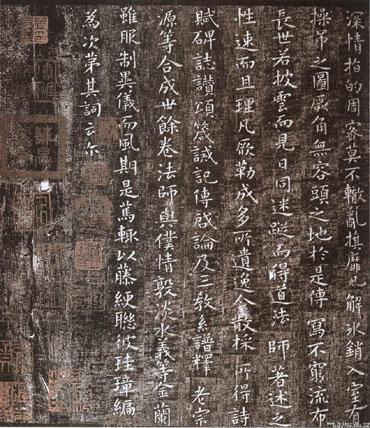 深情指的周密莫不轍亂旗靡瓦解冰銷入室有
操之圖厥角無容頭之地於是傳寫不窮流布
長世若披雲而見日同迷蹤而得道法師著述之
性速而且理凡厥勒成多所遺逸今散採所得詩
賦碑誌讚頌箴誡記傳啓論及三教系譜釋老宗
源等合成世餘卷法師與僕情敦淡水義等金蘭
雖服制異儀而風期是篤輒以藤綆聯彼珪璋編
為次茅其詞云尒